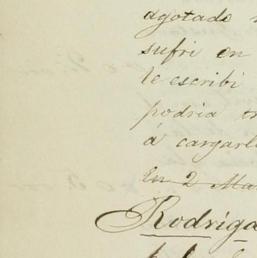 agotado
sufri en
te escribi
podria
á cargarl
En 2 Ma
Rodriga